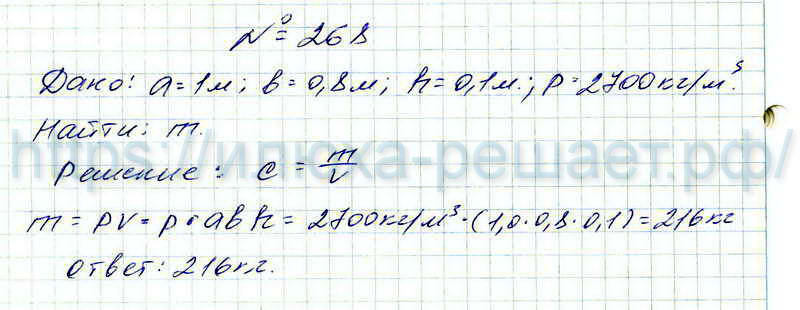 № 268
Дано: a=1м; b=0,8м; h=0,1м.; ρ=2700кг/м³.
Найти: m.
https://илюха-решает.рф/
Решение: c = m/V
m = ρV = ρ·abh = 2700кг/м³·(1,0·0,8·0,1)=216кг
Ответ: 216кг.